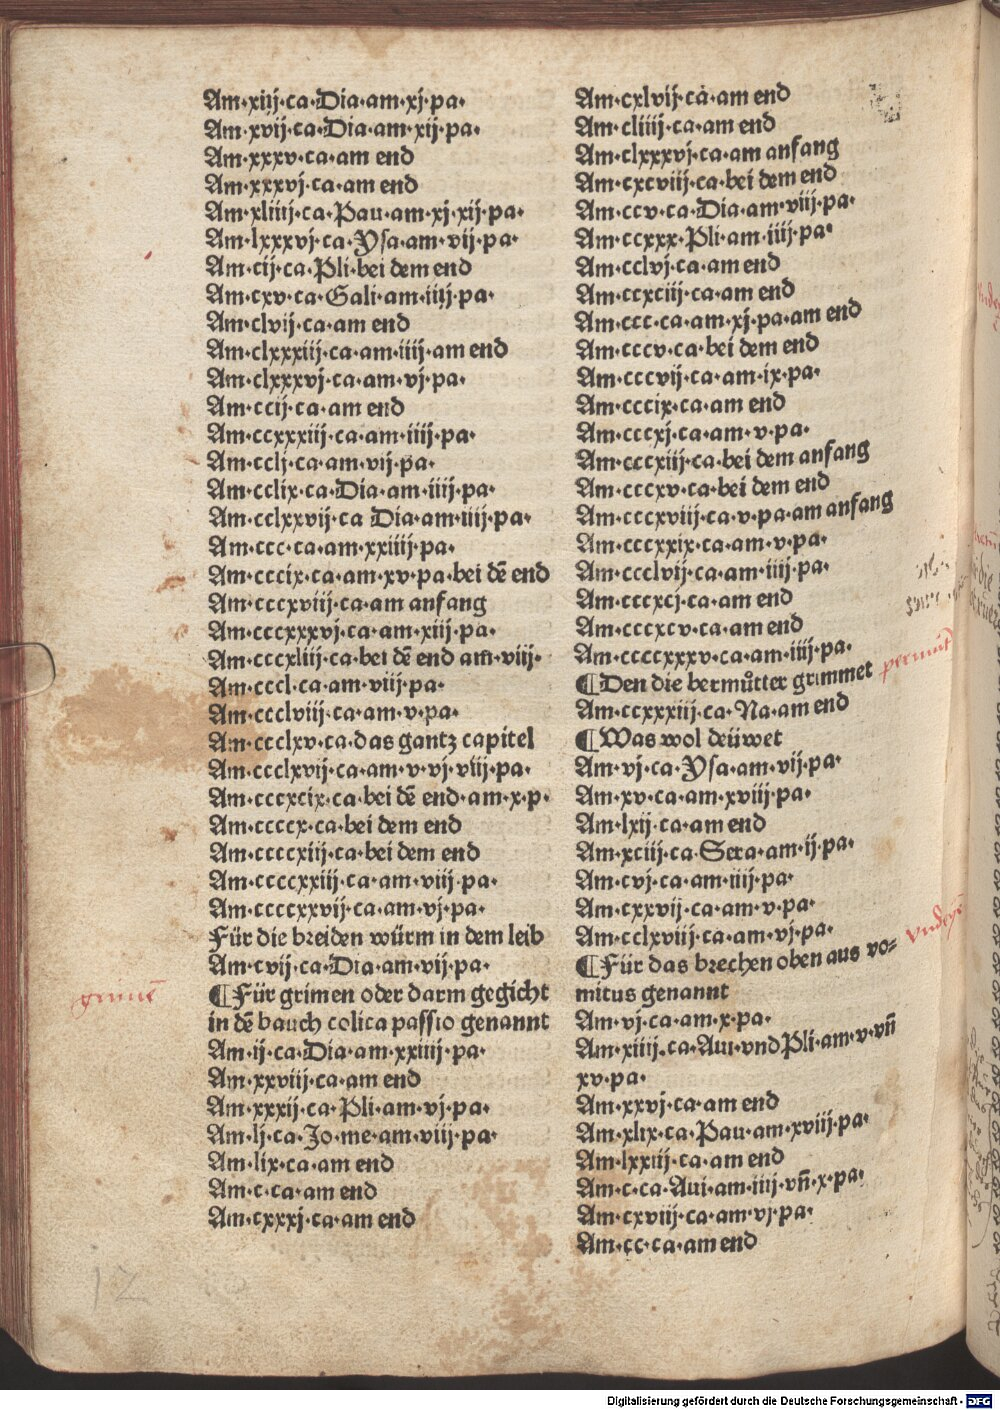 Am·xiij·ca·Dia·am·xj·pa·
Am·xvij·ca·Dia·am·xij·pa·
Am·xxxv·ca·am end
Am·xxxvj·ca·am end
Am·xliiij·ca·Pau·am·xj·xij·pa·
Am·lxxxvj·ca·Ysa·am·vij·pa·
Am·cij·ca·Pli·bei dem end
Am·cxv·ca·Gali·am·iiij·pa·
Am·clvij·ca·am end
Am·clxxxiij·ca·am·iiij·am end
Am·clxxxvj·ca·am·vj·pa·
Am·ccij·ca·am end
Am·ccxxxiij·ca·am·iiij·pa·
Am·cclj·ca·am·vij·pa·
Am·cclix·ca·Dia·am·iiij·pa·
Am·cclxxvij·ca Dia·am·iiij·pa·
Am·ccc·ca·am·xxiiij·pa·
Am·cccix·ca·am·xv·pa·bei dē end
Am·cccxviij·ca·am anfang
Am·cccxxxvj·ca·am·xiij·pa·
Am·cccxliij·ca·bei dē end am·viij·
Am·cccl·ca·am·viij·pa·
Am·ccclviij·ca·am·v·pa·
Am·ccclxv·ca·das gantz capitel
Am·ccclxvij·ca·am·v·vj·viij·pa·
Am·cccxcix·ca·bei dē end·am·x·p·
Am·ccccx·ca·bei dem end
Am·ccccxiij·ca·bei dem end
Am·ccccxxiij·ca·am·viij·pa·
Am·ccccxxvij·ca·am·vj·pa·
Für die breiden würm in dem leib
Am·cvij·ca·Dia·am·vij·pa·
¶Für grimen oder darm gegicht
in dē bauch colica passio genannt
Am·ij·ca·Dia·am·xxiiij·pa·
Am·xxviij·ca·am end
Am·xxxij·ca·Pli·am·vj·pa·
Am·lj·ca·Jo·me·am·viij·pa·
Am·lix·ca·am end
Am·c·ca·am end
Am·cxxxj·ca·am end
Am·cxlvij·ca·am end
Am·cliiij·ca·am end
Am·clxxxvj·ca·am anfang
Am·cxcviij·ca·bei dem end
Am·ccv·ca·Dia·am·viij·pa·
Am·ccxxx·Pli·am·iiij·pa·
Am·cclvj·ca·am end
Am·ccxciij·ca·am end
Am·ccc·ca·am·xj·pa·am end
Am·cccv·ca·bei dem end
Am·cccvij·ca·am·ix·pa·
Am·cccix·ca·am end
Am·cccxj·ca·am·v·pa·
Am·cccxiij·ca·bei dem anfang
Am·cccxv·ca·bei dem end
Am·cccxviij·ca·v·pa·am anfang
Am·cccxxix·ca·am·v·pa·
Am·ccclvij·ca·am·iiij·pa·
Am·cccxcj·ca·am end
Am·cccxcv·ca·am end
Am·ccccxxxv·ca·am·iiij·pa·
¶Den die bermůtter grimmet
Am·ccxxxiij·ca·Na·am end
¶Was wol deüwet
Am·vj·ca·Ysa·am·vij·pa·
Am·xv·ca·am·xviij·pa·
Am·lxij·ca·am end
Am·xciij·ca·Sera·am·ij·pa·
Am·cvj·ca·am·iiij·pa·
Am·cxxvij·ca·am·v·pa·
Am·cclxviij·ca·am·vj·pa·
¶Für das brechen oben aus vo=
mitus genannt
Am·vj·ca·am·x·pa·
Am·xiiij·ca·Aui·vnd Pli·am·v·vñ
xv·pa·
Am·xxvj·ca·am end
Am·xlix·ca·Pau·am·xviij·pa·
Am·lxxiij·ca·am end
Am·c·ca·Aui·am·iiij·vñ·x·pa·
Am·cxviij·ca·am·vj·pa·
Am·cc·ca·am end
12
Digitalisierung gefördert durch die Deutsche Forschungsgemeinschaft - DFG